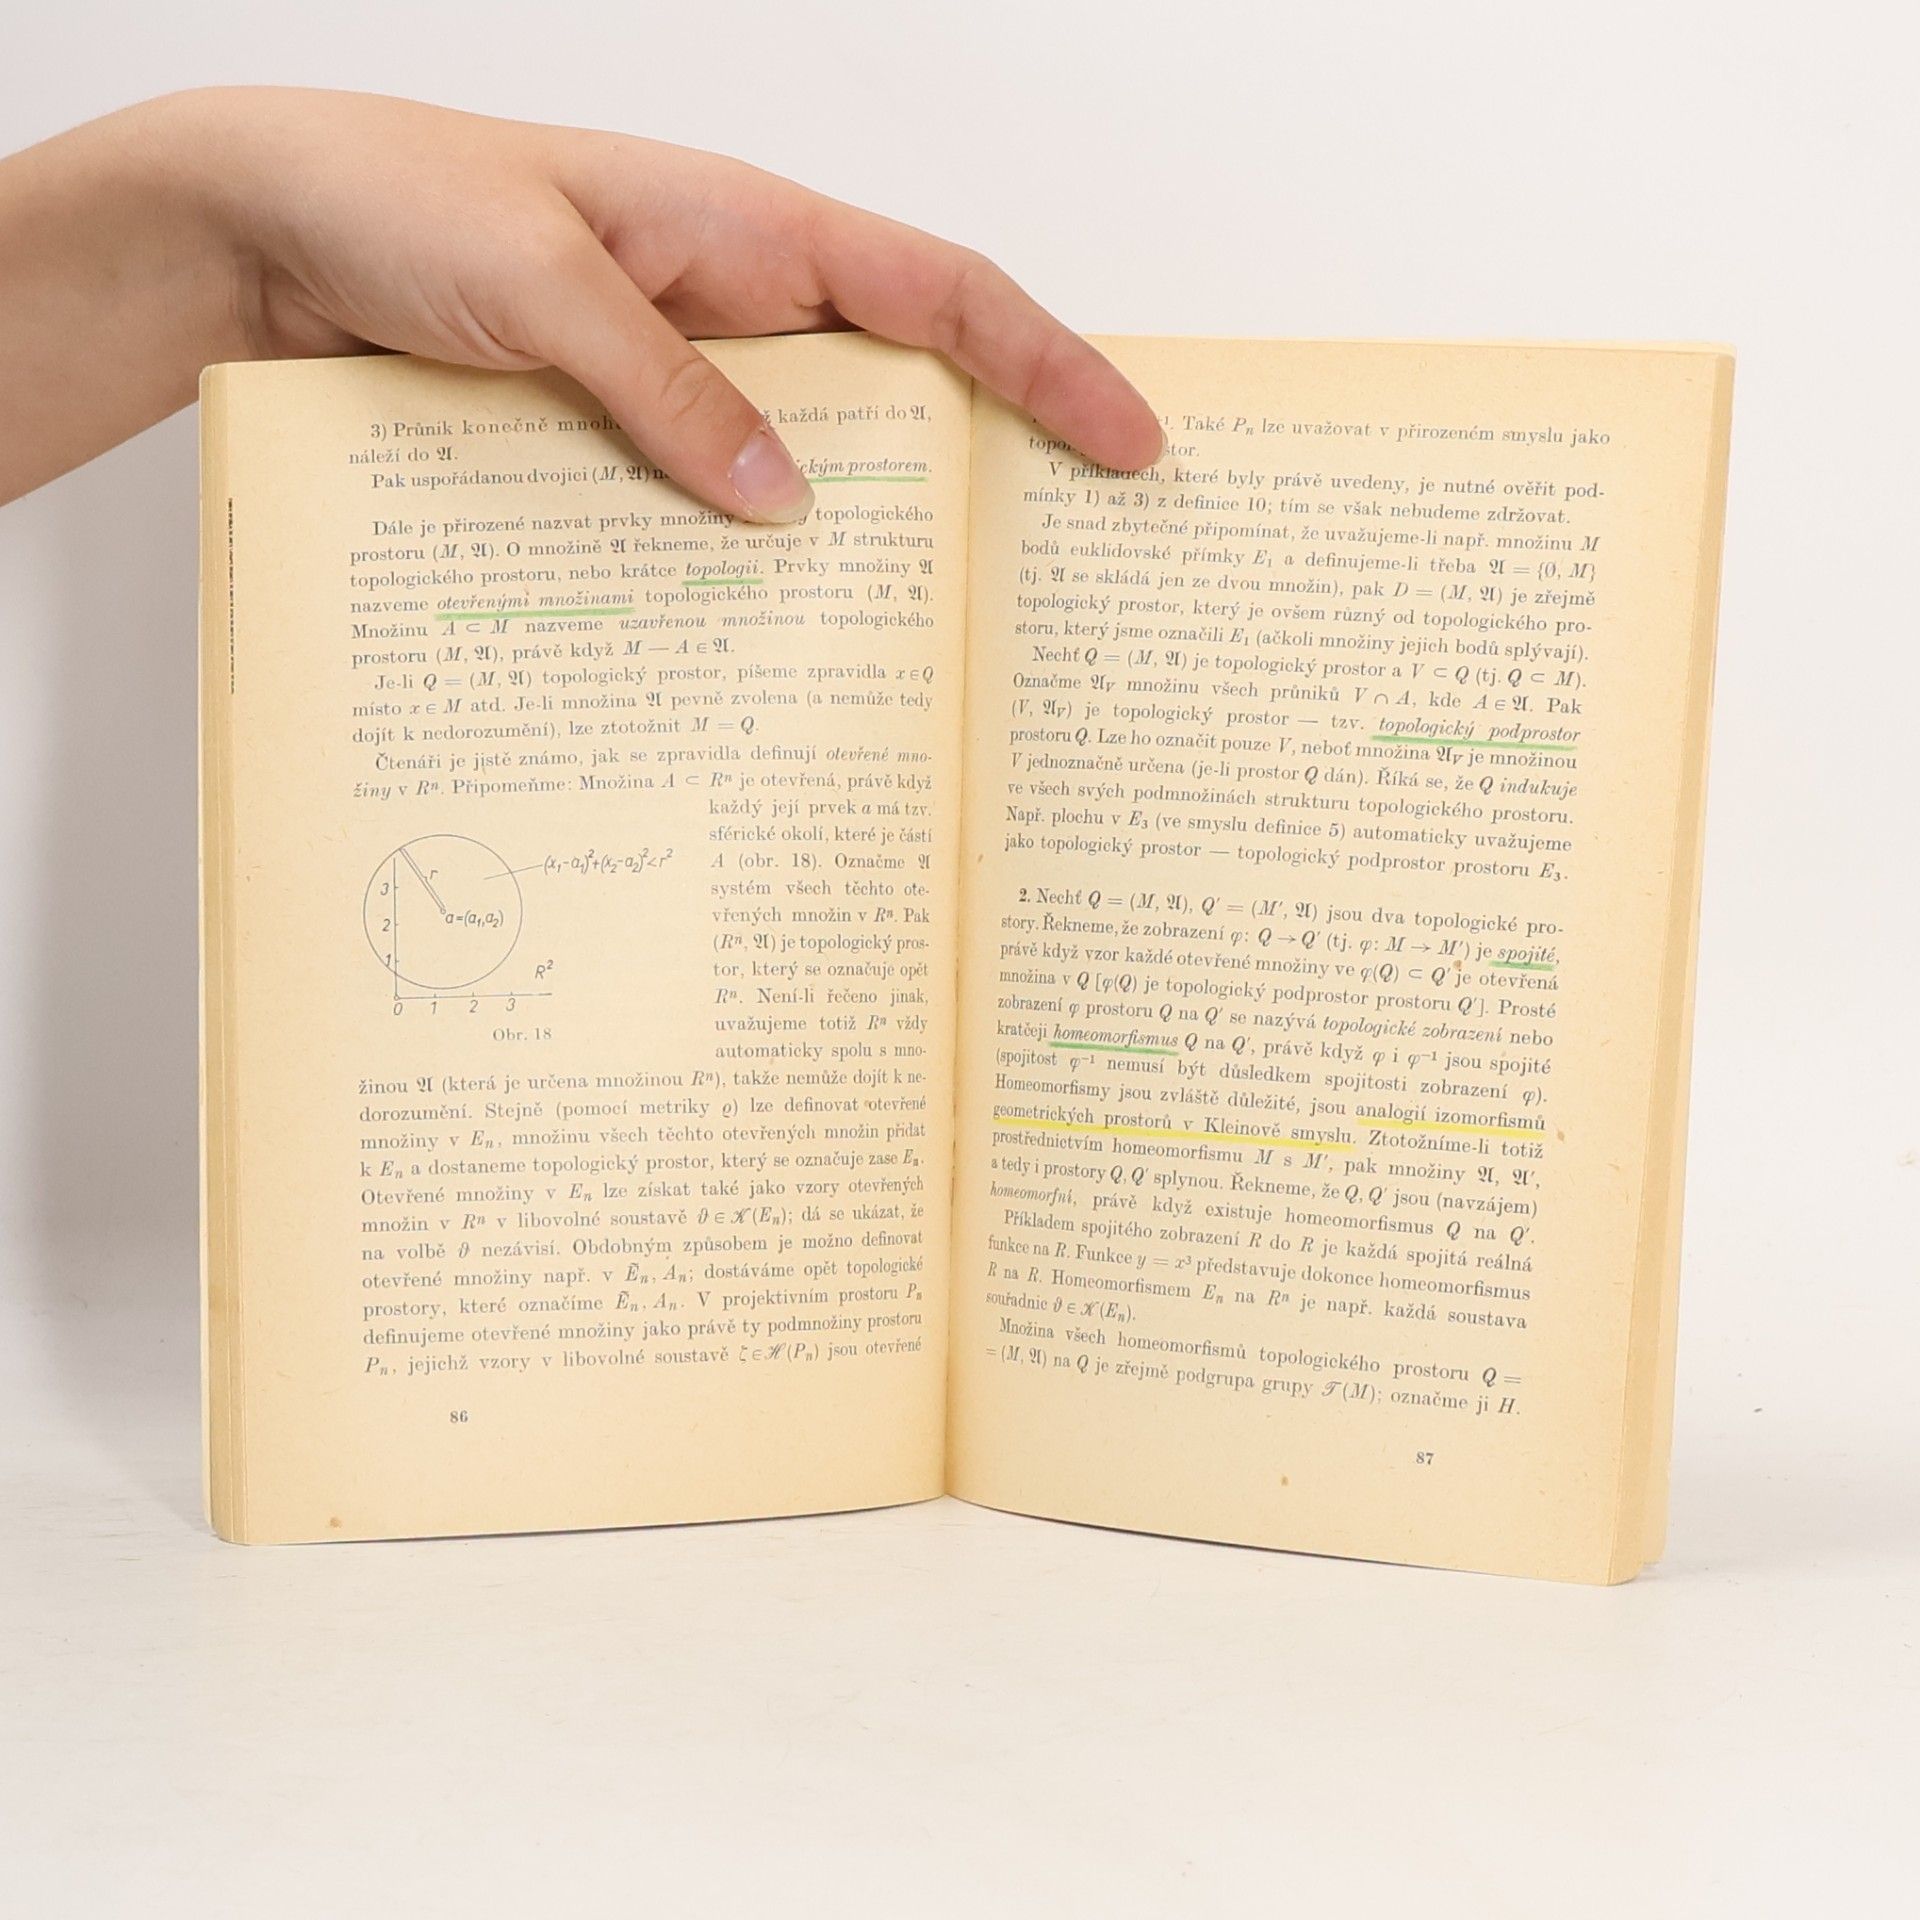 3) Průnik konečně každá patří do 𝔄,
náleží do 𝔄.
Pak uspořádanou dvojici (M, 𝔄)
Dále je přirozené nazvat prvky množiny topologického
prostoru (M, 𝔄). O množině 𝔄 řekneme, že určuje v M strukturu
topologického prostoru, nebo krátce topologii. Prvky množiny 𝔄
nazveme otevřenými množinami topologického prostoru (M, 𝔄).
Množinu A ⊂ M nazveme uzavřenou množinou topologického
prostoru (M, 𝔄), právě když M — A ∈ 𝔄.
Je-li Q = (M, 𝔄) topologický prostor, píšeme zpravidla x ∈ Q
místo x ∈ M atd. Je-li množina 𝔄 pevně zvolena (a nemůže tedy
dojít k nedorozumění), lze ztotožnit M = Q.
Čtenáři je jistě známo, jak se zpravidla definují otevřené mno-
žiny v Rⁿ. Připomeňme: Množina A ⊂ Rⁿ je otevřená, právě když
každý její prvek a má tzv.
sférické okolí, které je částí
A (obr. 18). Označme 𝔄
systém všech těchto ote-
vřených množin v Rⁿ. Pak
(Rⁿ, 𝔄) je topologický pros-
tor, který se označuje opět
Rⁿ. Není-li řečeno jinak,
uvažujeme totiž Rⁿ vždy
automaticky spolu s mno-
(x₁-a₁)²+(x₂-a₂)²<r²
r
a=(a₁,a₂)
3
2
1
R²
0 1 2 3
Obr. 18
žinou 𝔄 (která je určena množinou Rⁿ), takže nemůže dojít k ne-
dorozumění. Stejně (pomocí metriky ϱ) lze definovat otevřené
množiny v Eₙ, množinu všech těchto otevřených množin přidat
k Eₙ a dostaneme topologický prostor, který se označuje zase Eₙ.
Otevřené množiny v Eₙ lze získat také jako vzory otevřených
množin v Rⁿ v libovolné soustavě ϑ ∈ 𝒦(Eₙ); dá se ukázat, že
na volbě ϑ nezávisí. Obdobným způsobem je možno definovat
otevřené množiny např. v Ēₙ, Aₙ; dostáváme opět topologické
prostory, které označíme Ēₙ, Aₙ. V projektivním prostoru Pₙ
definujeme otevřené množiny jako právě ty podmnožiny prostoru
Pₙ, jejichž vzory v libovolné soustavě ζ ∈ ℋ(Pₙ) jsou otevřené
86
Také Pₙ lze uvažovat v přirozeném smyslu jako
V příkladech, které byly právě uvedeny, je nutné ověřit pod-
mínky 1) až 3) z definice 10; tím se však nebudeme zdržovat.
Je snad zbytečné připomínat, že uvažujeme-li např. množinu M
bodů euklidovské přímky E₁ a definujeme-li třeba 𝔄 = {Ø, M}
(tj. 𝔄 se skládá jen ze dvou množin), pak D = (M, 𝔄) je zřejmě
topologický prostor, který je ovšem různý od topologického pro-
storu, který jsme označili E₁ (ačkoli množiny jejich bodů splývají).
Nechť Q = (M, 𝔄) je topologický prostor a V ⊂ Q (tj. Q ⊂ M).
Označme 𝔄_V množinu všech průniků V ∩ A, kde A ∈ 𝔄. Pak
(V, 𝔄_V) je topologický prostor — tzv. topologický podprostor
prostoru Q. Lze ho označit pouze V, neboť množina 𝔄_V je množinou
V jednoznačně určena (je-li prostor Q dán). Říká se, že Q indukuje
ve všech svých podmnožinách strukturu topologického prostoru.
Např. plochu v E₃ (ve smyslu definice 5) automaticky uvažujeme
jako topologický prostor — topologický podprostor prostoru E₃.
2. Nechť Q = (M, 𝔄), Q′ = (M′, 𝔄) jsou dva topologické pro-
story. Řekneme, že zobrazení φ: Q → Q′ (tj. φ: M → M′) je spojité,
právě když vzor každé otevřené množiny ve φ(Q) ⊂ Q′ je otevřená
množina v Q [φ(Q) je topologický podprostor prostoru Q′]. Prosté
zobrazení φ prostoru Q na Q′ se nazývá topologické zobrazení nebo
kratčeji homeomorfismus Q na Q′, právě když φ i φ⁻¹ jsou spojité
(spojitost φ⁻¹ nemusí být důsledkem spojitosti zobrazení φ).
Homeomorfismy jsou zvláště důležité, jsou analogií izomorfismů
geometrických prostorů v Kleinově smyslu. Ztotožníme-li totiž
prostřednictvím homeomorfismu M s M′, pak množiny 𝔄, 𝔄′,
a tedy i prostory Q, Q′ splynou. Řekneme, že Q, Q′ jsou (navzájem)
homeomorfní, právě když existuje homeomorfismus Q na Q′.
Příkladem spojitého zobrazení R do R je každá spojitá reálná
funkce na R. Funkce y = x³ představuje dokonce homeomorfismus
R na R. Homeomorfismem Eₙ na Rⁿ je např. každá soustava
souřadnic ϑ ∈ 𝒦(Eₙ).
Množina všech homeomorfismů topologického prostoru Q =
= (M, 𝔄) na Q je zřejmě podgrupa grupy 𝒯(M); označme ji H.
87